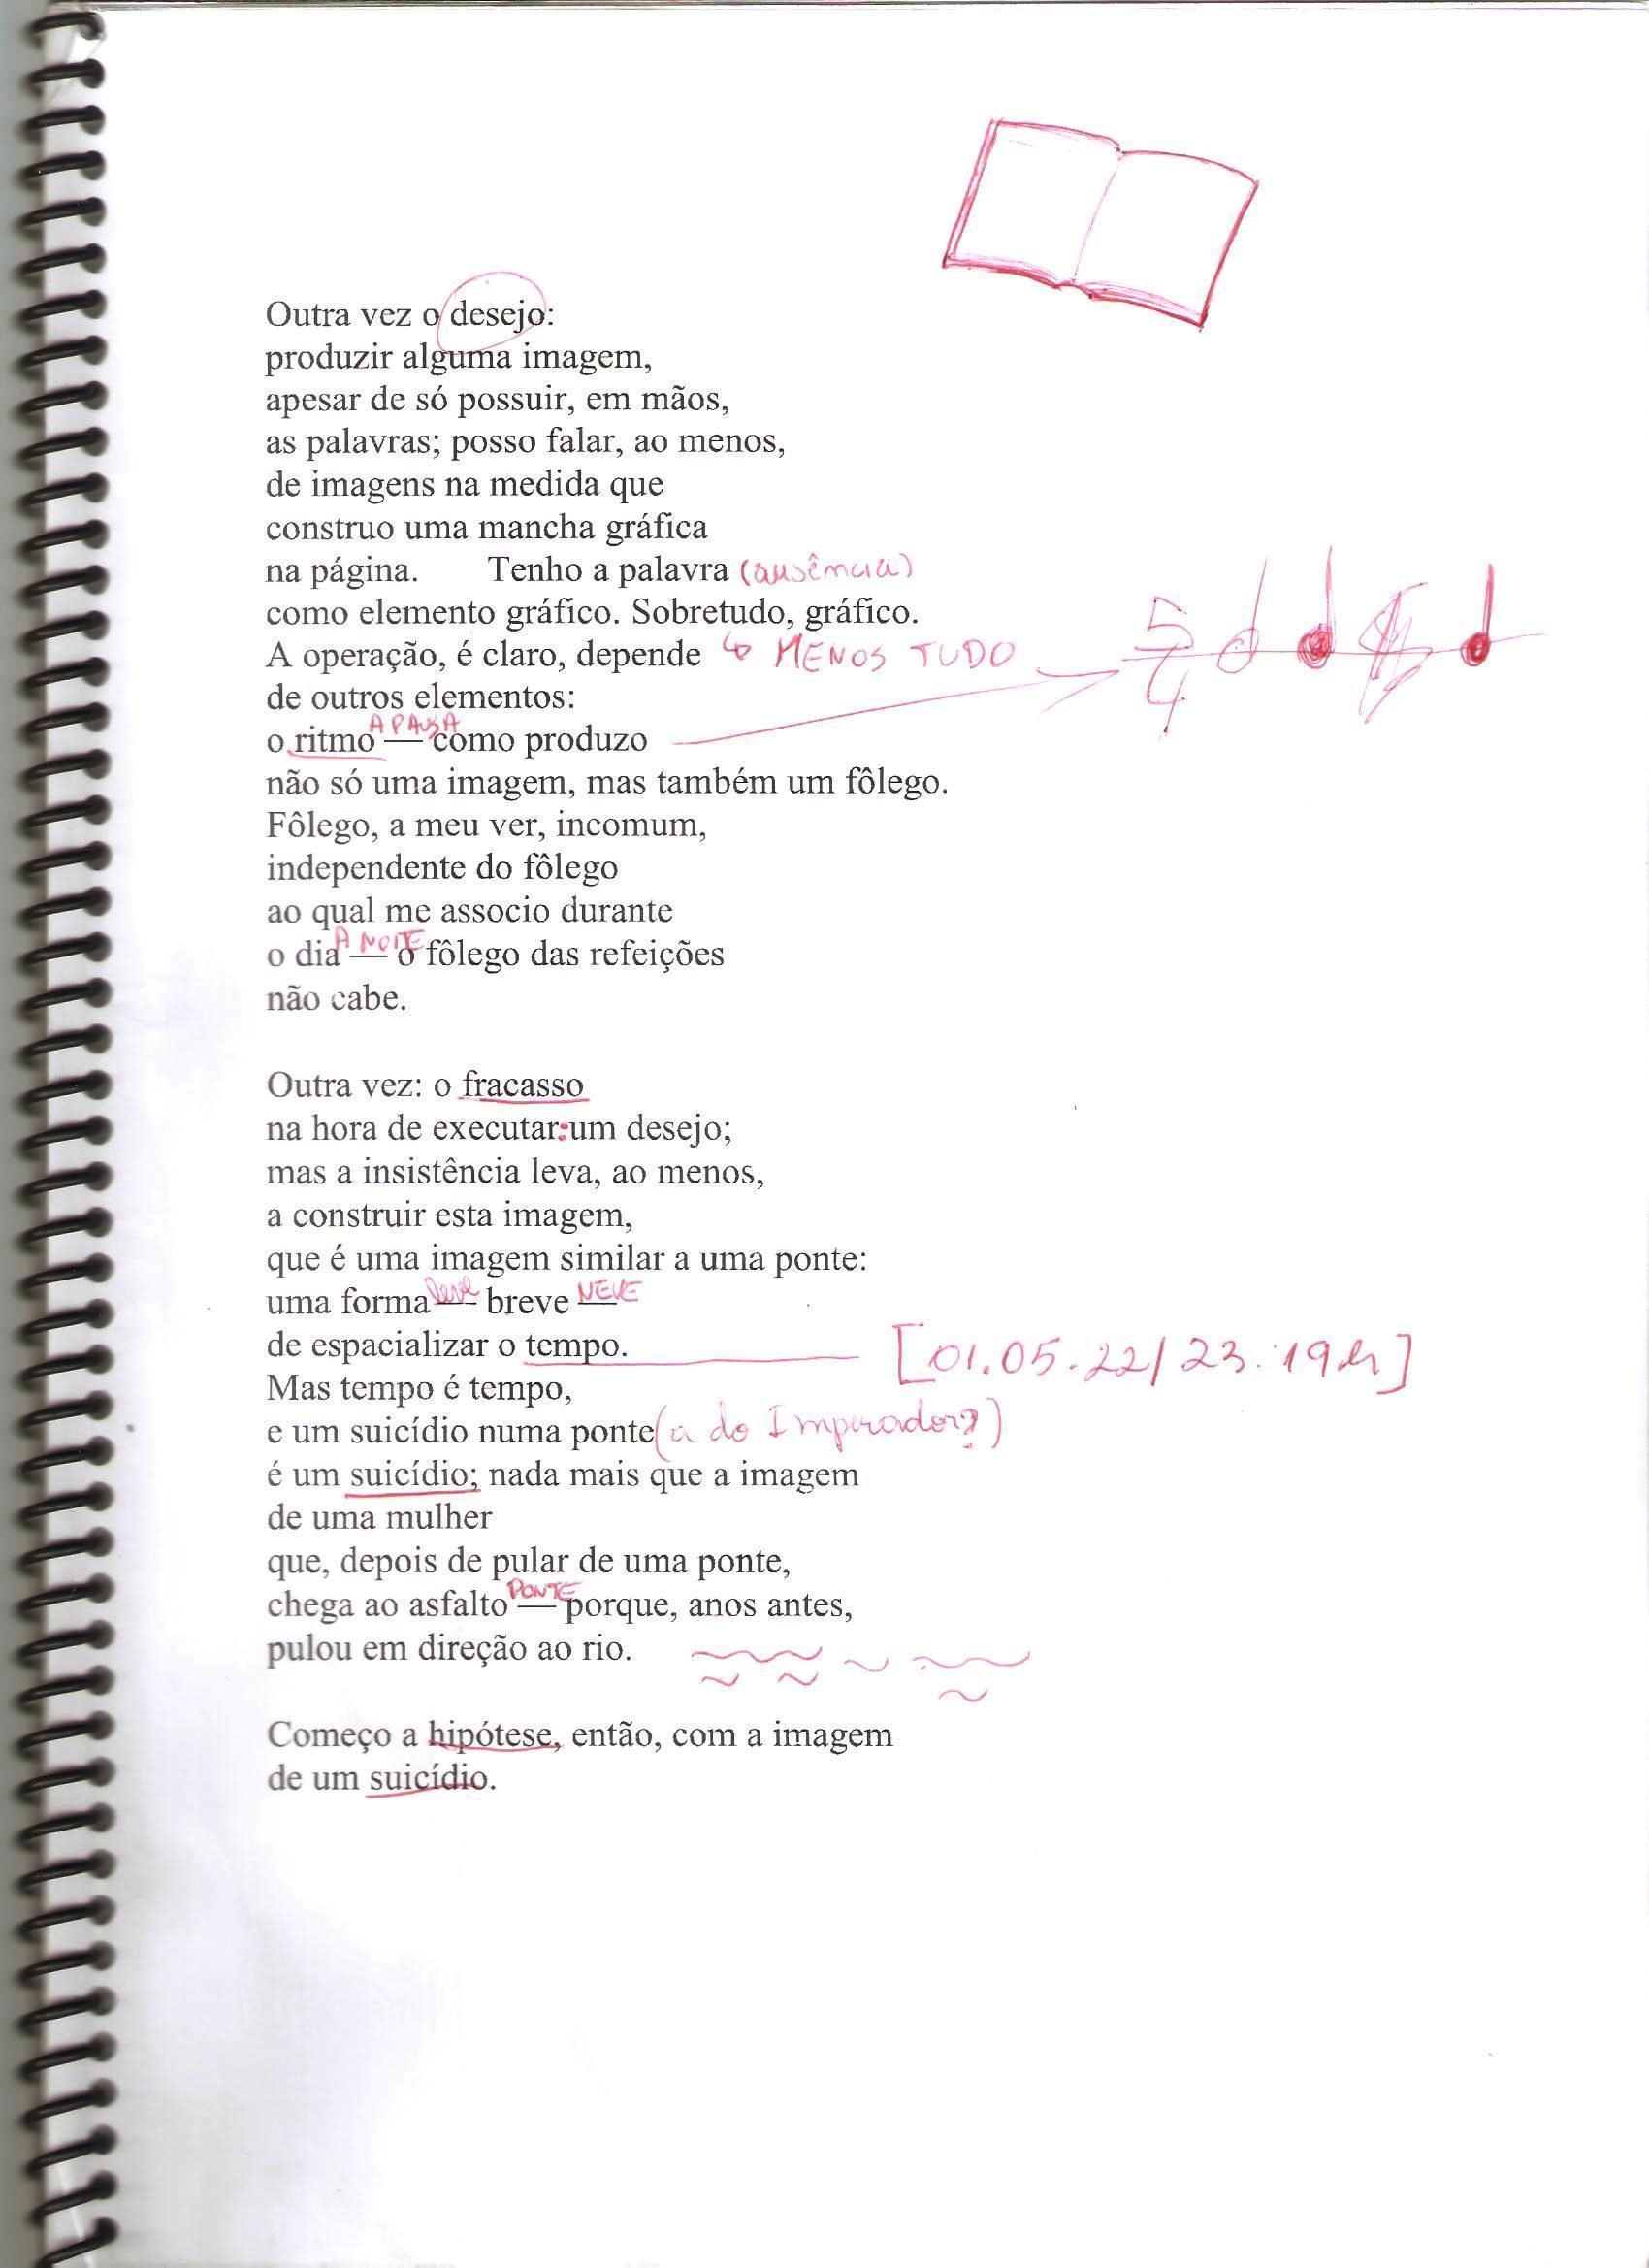 Outra vez o desejo:
produzir alguma imagem,
apesar de só possuir, em mãos,
as palavras; posso falar, ao menos,
de imagens na medida que
construo uma mancha gráfica
na página. Tenho a palavra (ausência)
como elemento gráfico. Sobretudo, gráfico.
A operação, é claro, depende ↳ MENOS TUDO
de outros elementos:
A PAUSA
o ritmo — como produzo
5/4
não só uma imagem, mas também um fôlego.
Fôlego, a meu ver, incomum,
independente do fôlego
ao qual me associo durante
A NOITE
o dia — o fôlego das refeições
não cabe.
Outra vez: o fracasso
na hora de executar:um desejo;
mas a insistência leva, ao menos,
a construir esta imagem,
que é uma imagem similar a uma ponte:
leve NEVE
uma forma — breve —
de espacializar o tempo. [01.05.22/23:19h]
Mas tempo é tempo,
e um suicídio numa ponte (a do Imperador?)
é um suicídio; nada mais que a imagem
de uma mulher
que, depois de pular de uma ponte,
PONTE
chega ao asfalto — porque, anos antes,
pulou em direção ao rio.
Começo a hipótese, então, com a imagem
de um suicídio.